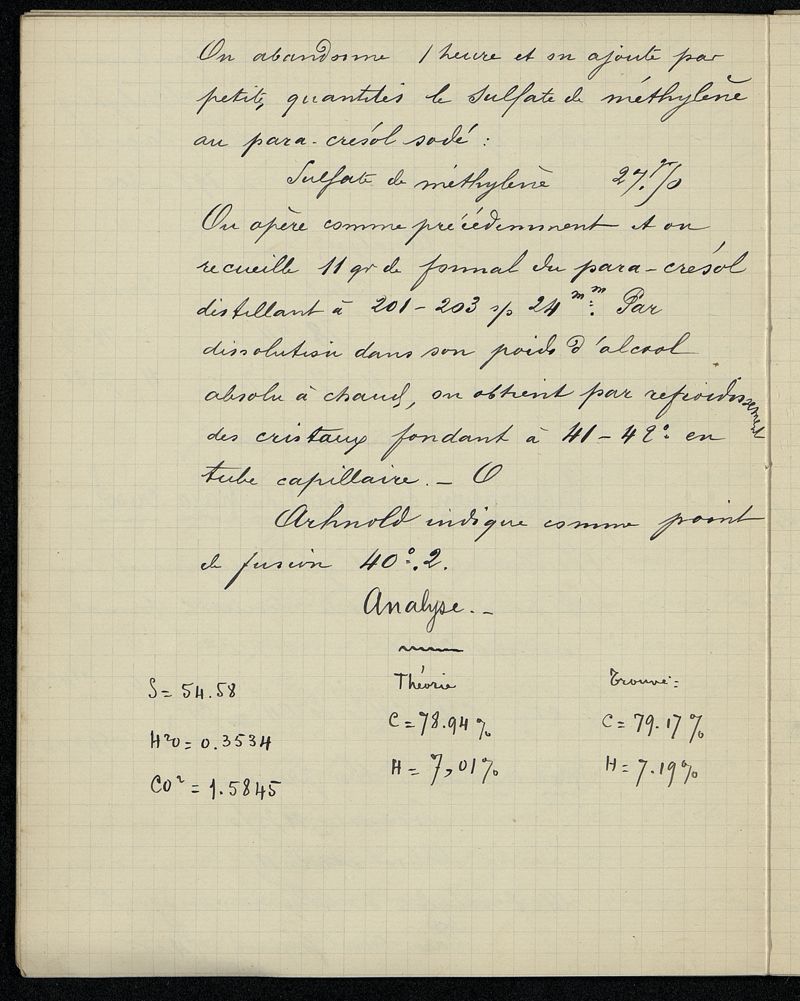 On abandonne 1 heure et on ajoute par
petites quantités le sulfate de méthylène
au para-crésol sodé :
Sulfate de méthylène 27 gr
On opère comme précédemment et on
recueille 11 gr de formal du para-crésol
distillant à 201-203 s/s 24 mm. Par
dissolution dans son poids d'alcool
absolu à chaud, on obtient par refroidissement
des cristaux fondant à 41-42° en
tube capillaire. —
Arhnold indique comme point
de fusion 40°.2.
Analyse. —
S = 54.58 Théorie Trouvé =
H²O = 0.3534 C = 78.94 % C = 79.17 %
CO² = 1.5845 H = 7,01 % H = 7.19 %